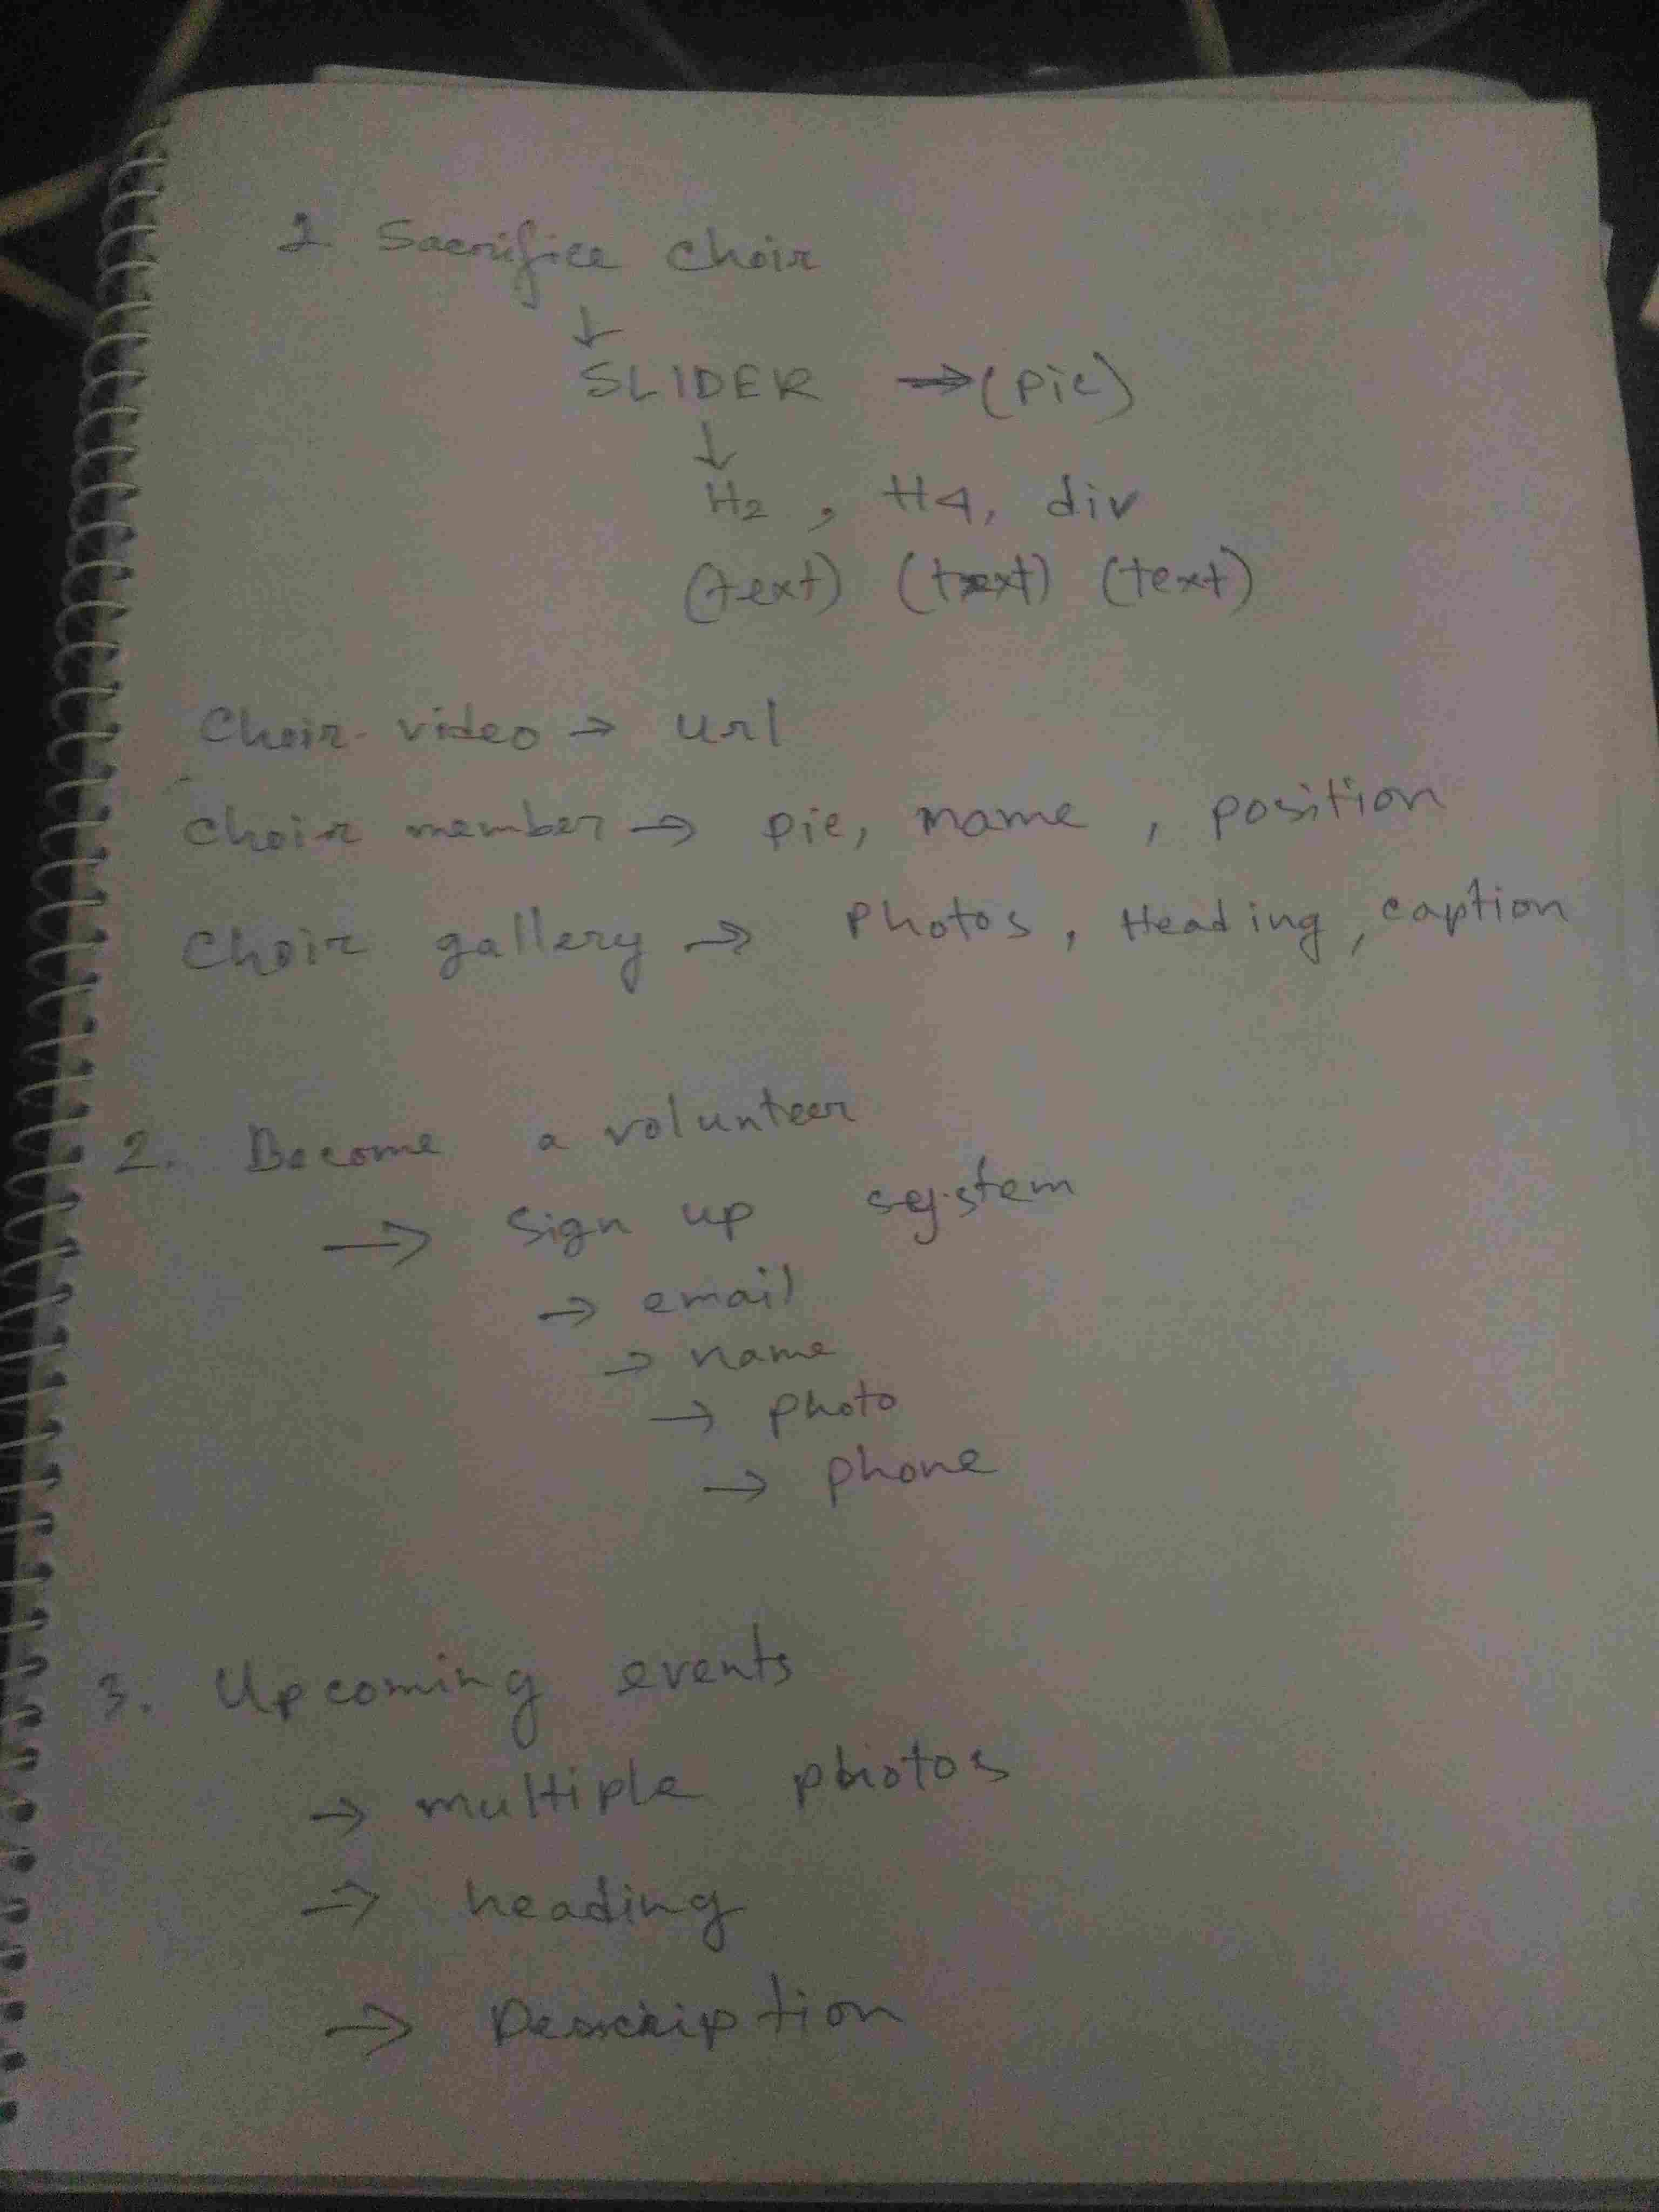 1 Sacrifice choir
↓
SLIDER → (pic)
↓
H2 , H4, div
(text) (text) (text)
Choir video → url
choir member → pic, name , position
Choir gallery → Photos, Heading, caption
2. Become a volunteer
→ Sign up system
→ email
→ name
→ photo
→ phone
3. Upcoming events
→ multiple photos
→ heading
→ Description